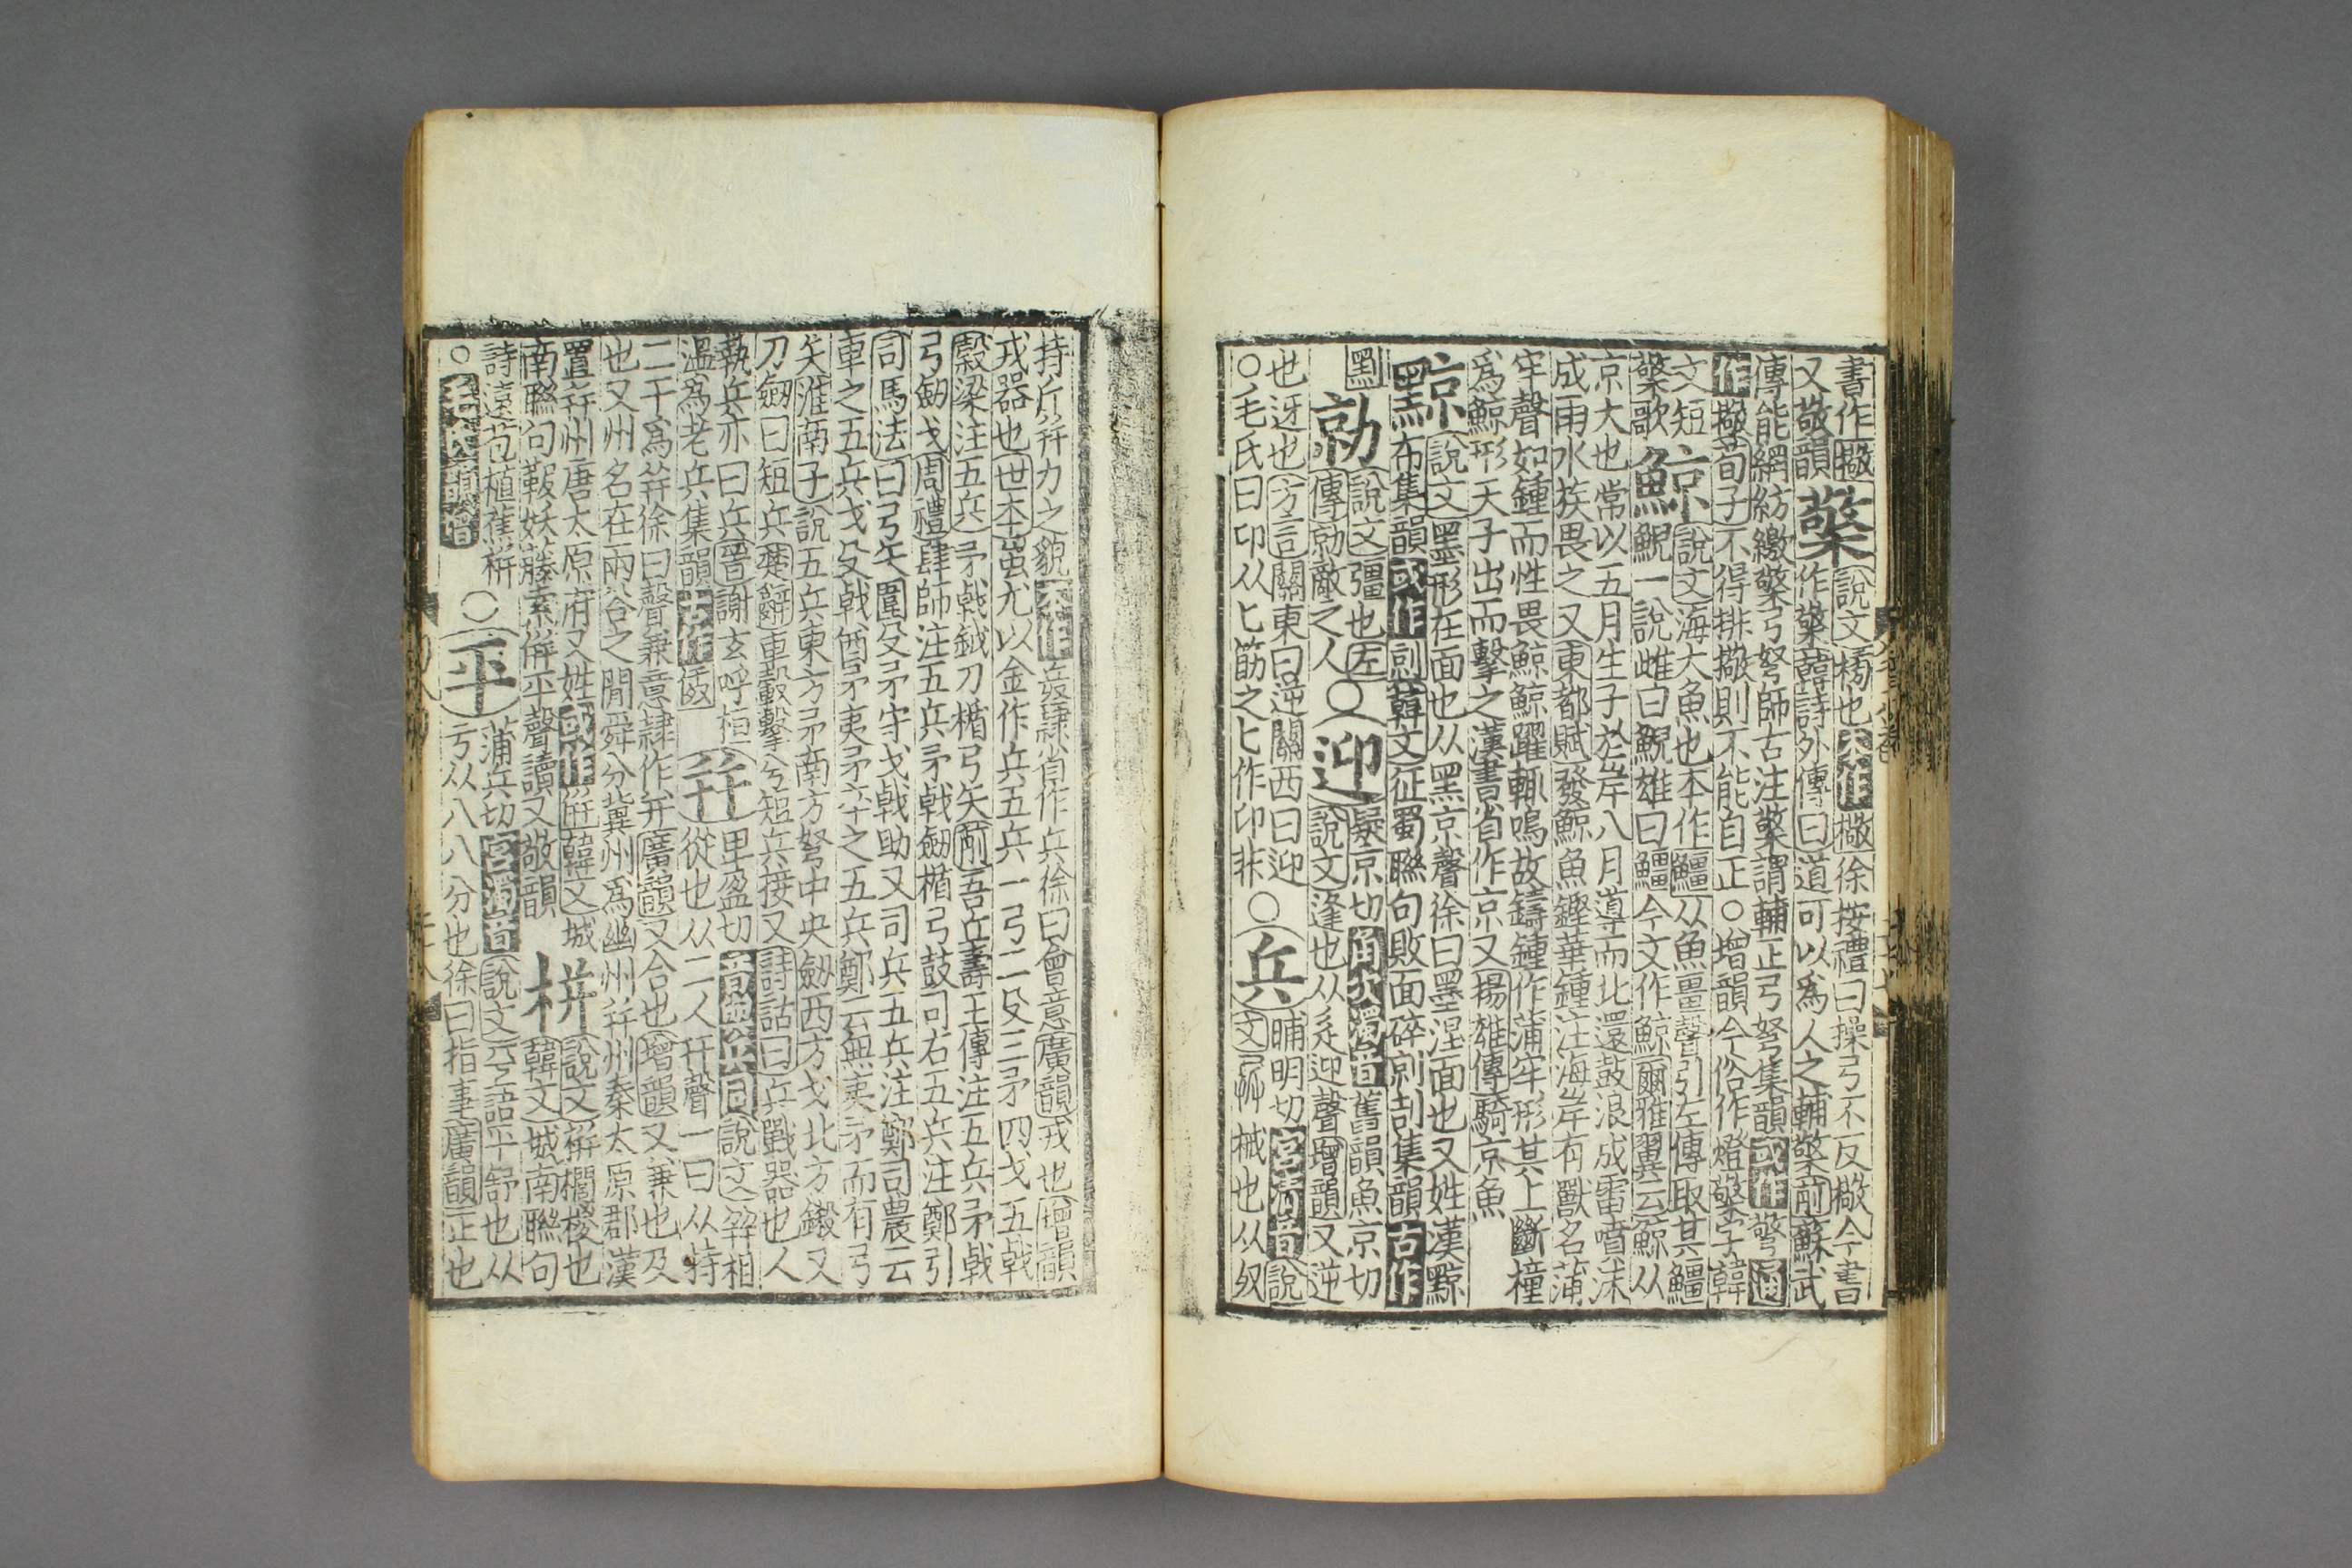 書作㩀說文㯳也本作橵徐按禮曰操弓不反檠今書
又敬韻檠作檠韓詩外傳曰道可以爲人之輔檠前蘇武
傳能網紡繳檠弓弩師古注檠謂輔正弓弩集韻或作㢣通
作㯳荀子不得排㯳則不能自正○增韻今俗作燈檠字韓
文短檠歌鯨說文海大魚也本作鱷从魚畺聲引左傳取其鱷
鯢一說雌曰鯢雄曰鱷今文作鯨爾雅翼云鯨从
京大也常以五月生子於岸八月導而北還鼓浪成雷噴沫
成雨水族畏之又東都賦發鯨魚鏗華鍾注海岸有獸名蒲
牢聲如鍾而性畏鯨鯨躍輒鳴故鑄鍾作蒲牢形其上斵橦
爲鯨形天子出而擊之漢書省作京又揚雄傳騎京魚
黥說文墨形在面也从黑京聲徐曰墨涅面也又姓漢黥
布集韻或作剠韓文征蜀聯句敗面碎剠刮集韻古作
䵞勍說文彊也左傳勍敵之人○迎疑京切角次濁音舊韻魚京切
說文逢也从辵迎聲增韻又逆
也迓也方言關東曰逆關西曰迎
○毛氏曰卬从匕節之匕作卬非○兵晡明切宮清音說文械也从収
持斤幷力之貌本作㒶隷省作兵徐曰會意廣韻戎也增韻
戎器也世本蚩尤以金作兵五兵一弓二殳三矛四戈五戟
穀梁注五兵矛戟鉞刀楯弓矢前吾丘壽王傳注五兵矛戟
弓劒戈周禮肆師注五兵矛戟劒楯弓鼓司右五兵注鄭引
司馬法曰弓矢圍殳矛守戈戟助又司兵五兵注鄭司農云
車之五兵戈殳戟酋矛夷矛步卒之五兵鄭云無夷矛而有弓
矢淮南子說五兵東方矛南方弩中央劒西方戈北方鎩又
刀劒曰短兵楚辭車轂擊兮短兵接又詩詁曰兵戰器也人
執兵亦曰兵晉謝玄呼桓
溫爲老兵集韻古作𠈻○幷卑盈切音與兵同說文幷相
從也从二人幵聲一曰从持
二干爲幷徐曰聲兼意隷作并廣韻又合也增韻又兼也及
也又州名在兩谷之閒舜分冀州爲幽州幷州秦太原郡漢
置幷州唐太原府又姓或作𠀤韓文城
南聯句䩬妖藤索絣平聲讀又敬韻栟說文栟櫚椶也
韓文城南聯句
詩遠苞植蕉栟○平蒲兵切宮濁音說文㔻語平舒也从
亏从八八分也徐曰指事廣韻正也